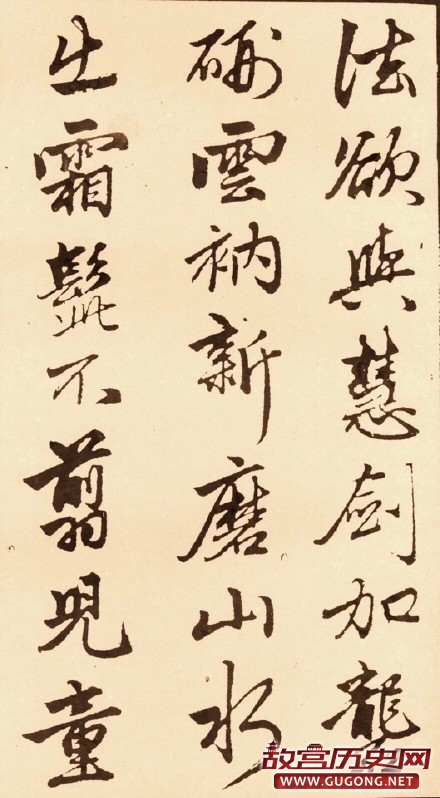 法欲與慧劍加礱
硎雲衲新磨山水
出霜髭不翦兒童
故宫历史网
WWW.GUGONG.NET